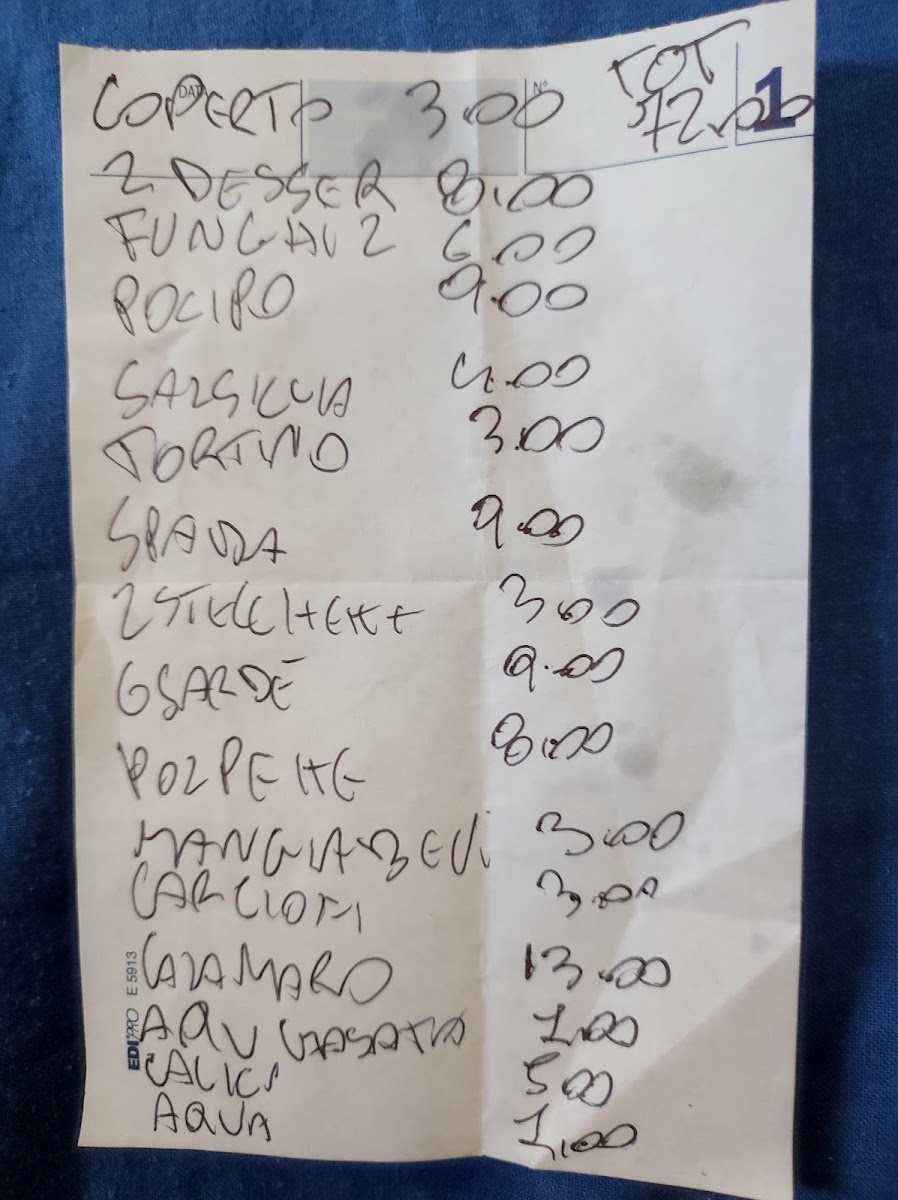 DATA N° 1
COPERTO 3.00 TOT 72.00
2 DESSER 8.00
FUNGHI 2 6.00
POLIPO 9.00
SALSICCIA 4.00
TORTINO 3.00
SPADA 9.00
2 STECCHEHE 3.00
6 SARDE 9.00
POLPEHE 8.00
MANGIA BEVI 3.00
CARCIOFI 3.00
CALAMARO 13.00
AQU GASATA 1.00
CALICI 5 00
AQUA 1,00
EDIPRO E 5913